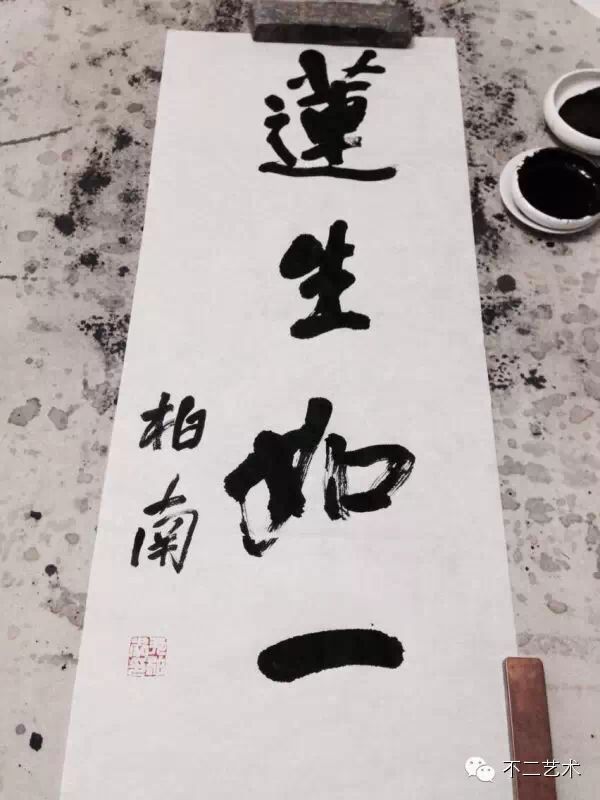 蓮生如一
柏南
不二艺术